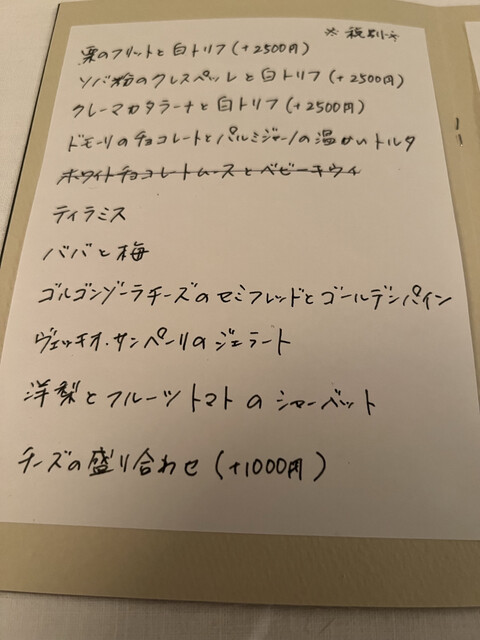 ※税別
栗のフリットと白トリフ(+2500円)
ソバ粉のクレスペッレと白トリフ(+2500円)
クレーマカタラーナと白トリフ(+2500円)
ドモーリのチョコレートとパルミジャーノの温かいトルタ
ホワイトチョコレートムースとベビーキウイ
ティラミス
ババと梅
ゴルゴンゾーラチーズのセミフレッドとゴールデンパイン
ヴェッキオ・サンペーリのジェラート
洋梨とフルーツトマトのシャーベット
チーズの盛り合わせ(+1000円)